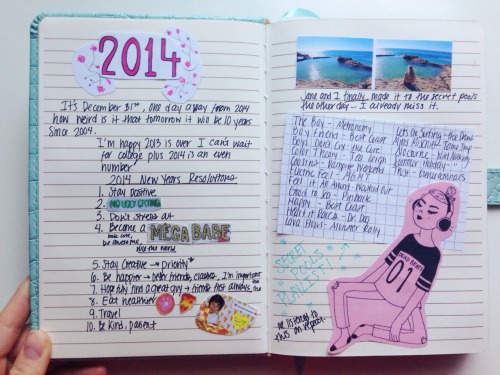 2014
It's December 31st, one day away from 2014
how weird is it that tomorrow it will be 10 years
since 2004.
I'm happy 2013 is over I cant wait
for college plus 2014 is an even
number
2014 New Years Resolutions
1. Stay positive
2. NO UGLY CRYING
3. Don't stress
4. Become a MEGA BABE
5. Stay Creative → Priority
6. Be happier → better friends, classes, I'm important too
7. Hopefully find a great guy → friends first always,
8. Eat healthier
9. Travel
10. Be kind, patient
Jane and I finally made it to the secret pools
the other day... I already miss it.
The Bay - Metronomy
Boyfriend - Best Coast
Boys Don't Cry - the Cure
Color Theory - Teen
Cousins - Vampire Weekend
Electric Feel - M.G.M.T
Feel it All Around - Washed Out
Good to Sea - Pinback
Happy - Best Coast
Heart it Races - Dr. Dog
Lava Howl - Summer Rally
Lets Go Surfing - the Drums
Summer Holiday
SECRET
POOLS
PLAYLIST!
DEAD BEAT
01
R.I.P
listened to
this on repeat.